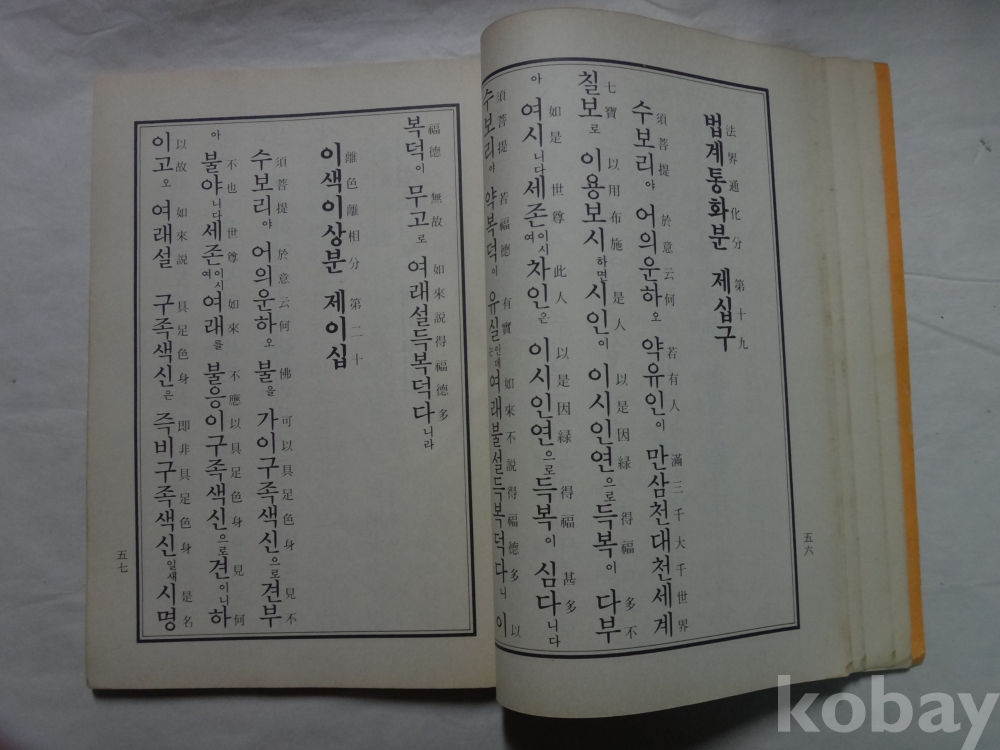 법계통화분 제십구
法界通化分 第十九
수보리야 어의운하오 약유인이 만삼천대천세계
須菩提 於意云何 若有人 滿三千大千世界
칠보로 이용보시하면 시인이 이시인연으로 득복이 다부
七寶 以用布施 是人 以是因緣 得福 多不
아 여시니다 세존이시여 차인은 이시인연으로 득복이 심다니다
如是 世尊 此人 以是因緣 得福 甚多
수보리야 약복덕이 유실인대는 여래불설득복덕다니 이
須菩提 若福德 有實 如來不說得福德多 以
五六
복덕이 무고로 여래설득복덕다니라
福德 無故 如來說得福德多
이색이상분 제이십
離色離相分 第二十
수보리야 어의운하오 불을 가이구족색신으로 견부
須菩提 於意云何 佛 可以具足色身 見不
아 불야니다 세존이시여 여래를 불응이구족색신으로 견이니 하
不也 世尊 如來 不應以具足色身 見 何
이고오 여래설 구족색신은 즉비구족색신일새 시명
以故 如來說 具足色身 即非具足色身 是名
五七
kobay